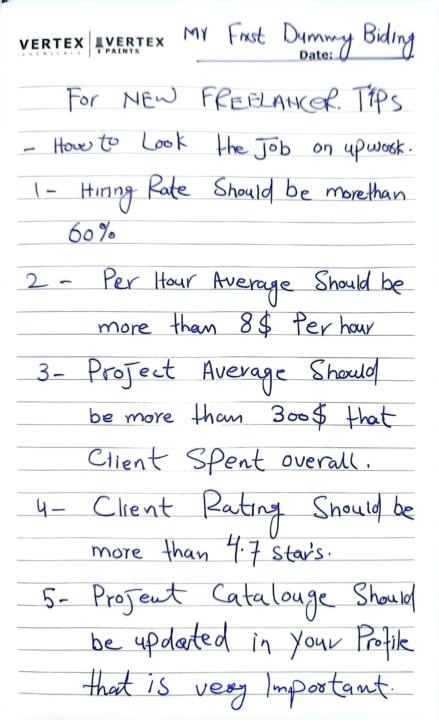 VERTEX VERTEX My First Dummy Biding
CHEMICALS PAINTS Date:
For NEW FREELANCER TIPS
- How to Look the Job on upwork.
1- Hiring Rate Should be morethan
60%
2- Per Hour Average Should be
more than 8$ Per hour
3- Project Average Should
be more than 300$ that
Client Spent overall.
4- Client Rating Should be
more than 4.7 star's.
5- Project Catalouge Should
be updated in your Profile
that is very Important.